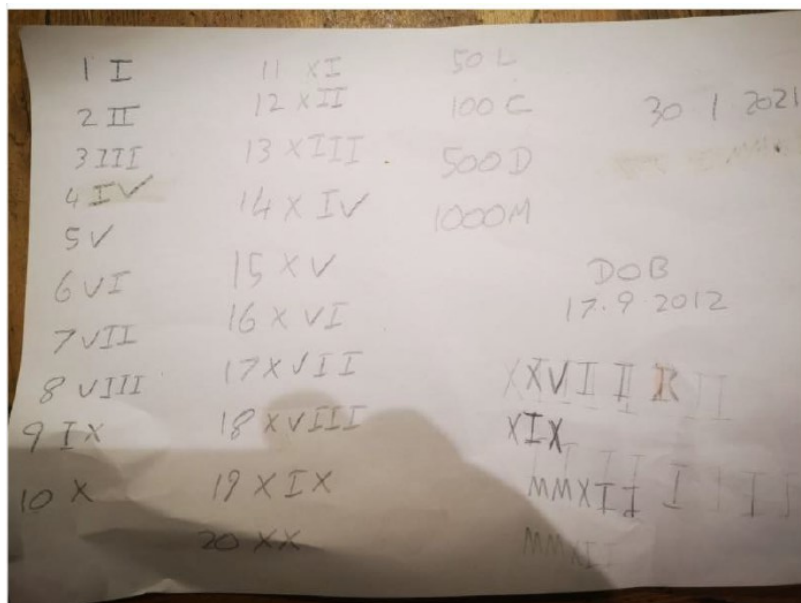 1 I
2 II
3 III
4 IV
5 V
6 VI
7 VII
8 VIII
9 IX
10 X
11 XI
12 XII
13 XIII
14 XIV
15 XV
16 XVI
17 XVII
18 XVIII
19 XIX
20 XX
50 L
100 C
500 D
1000 M
30 1 2021
DOB
17.9 2012
XXVII
XIX
MMXII
MMXII